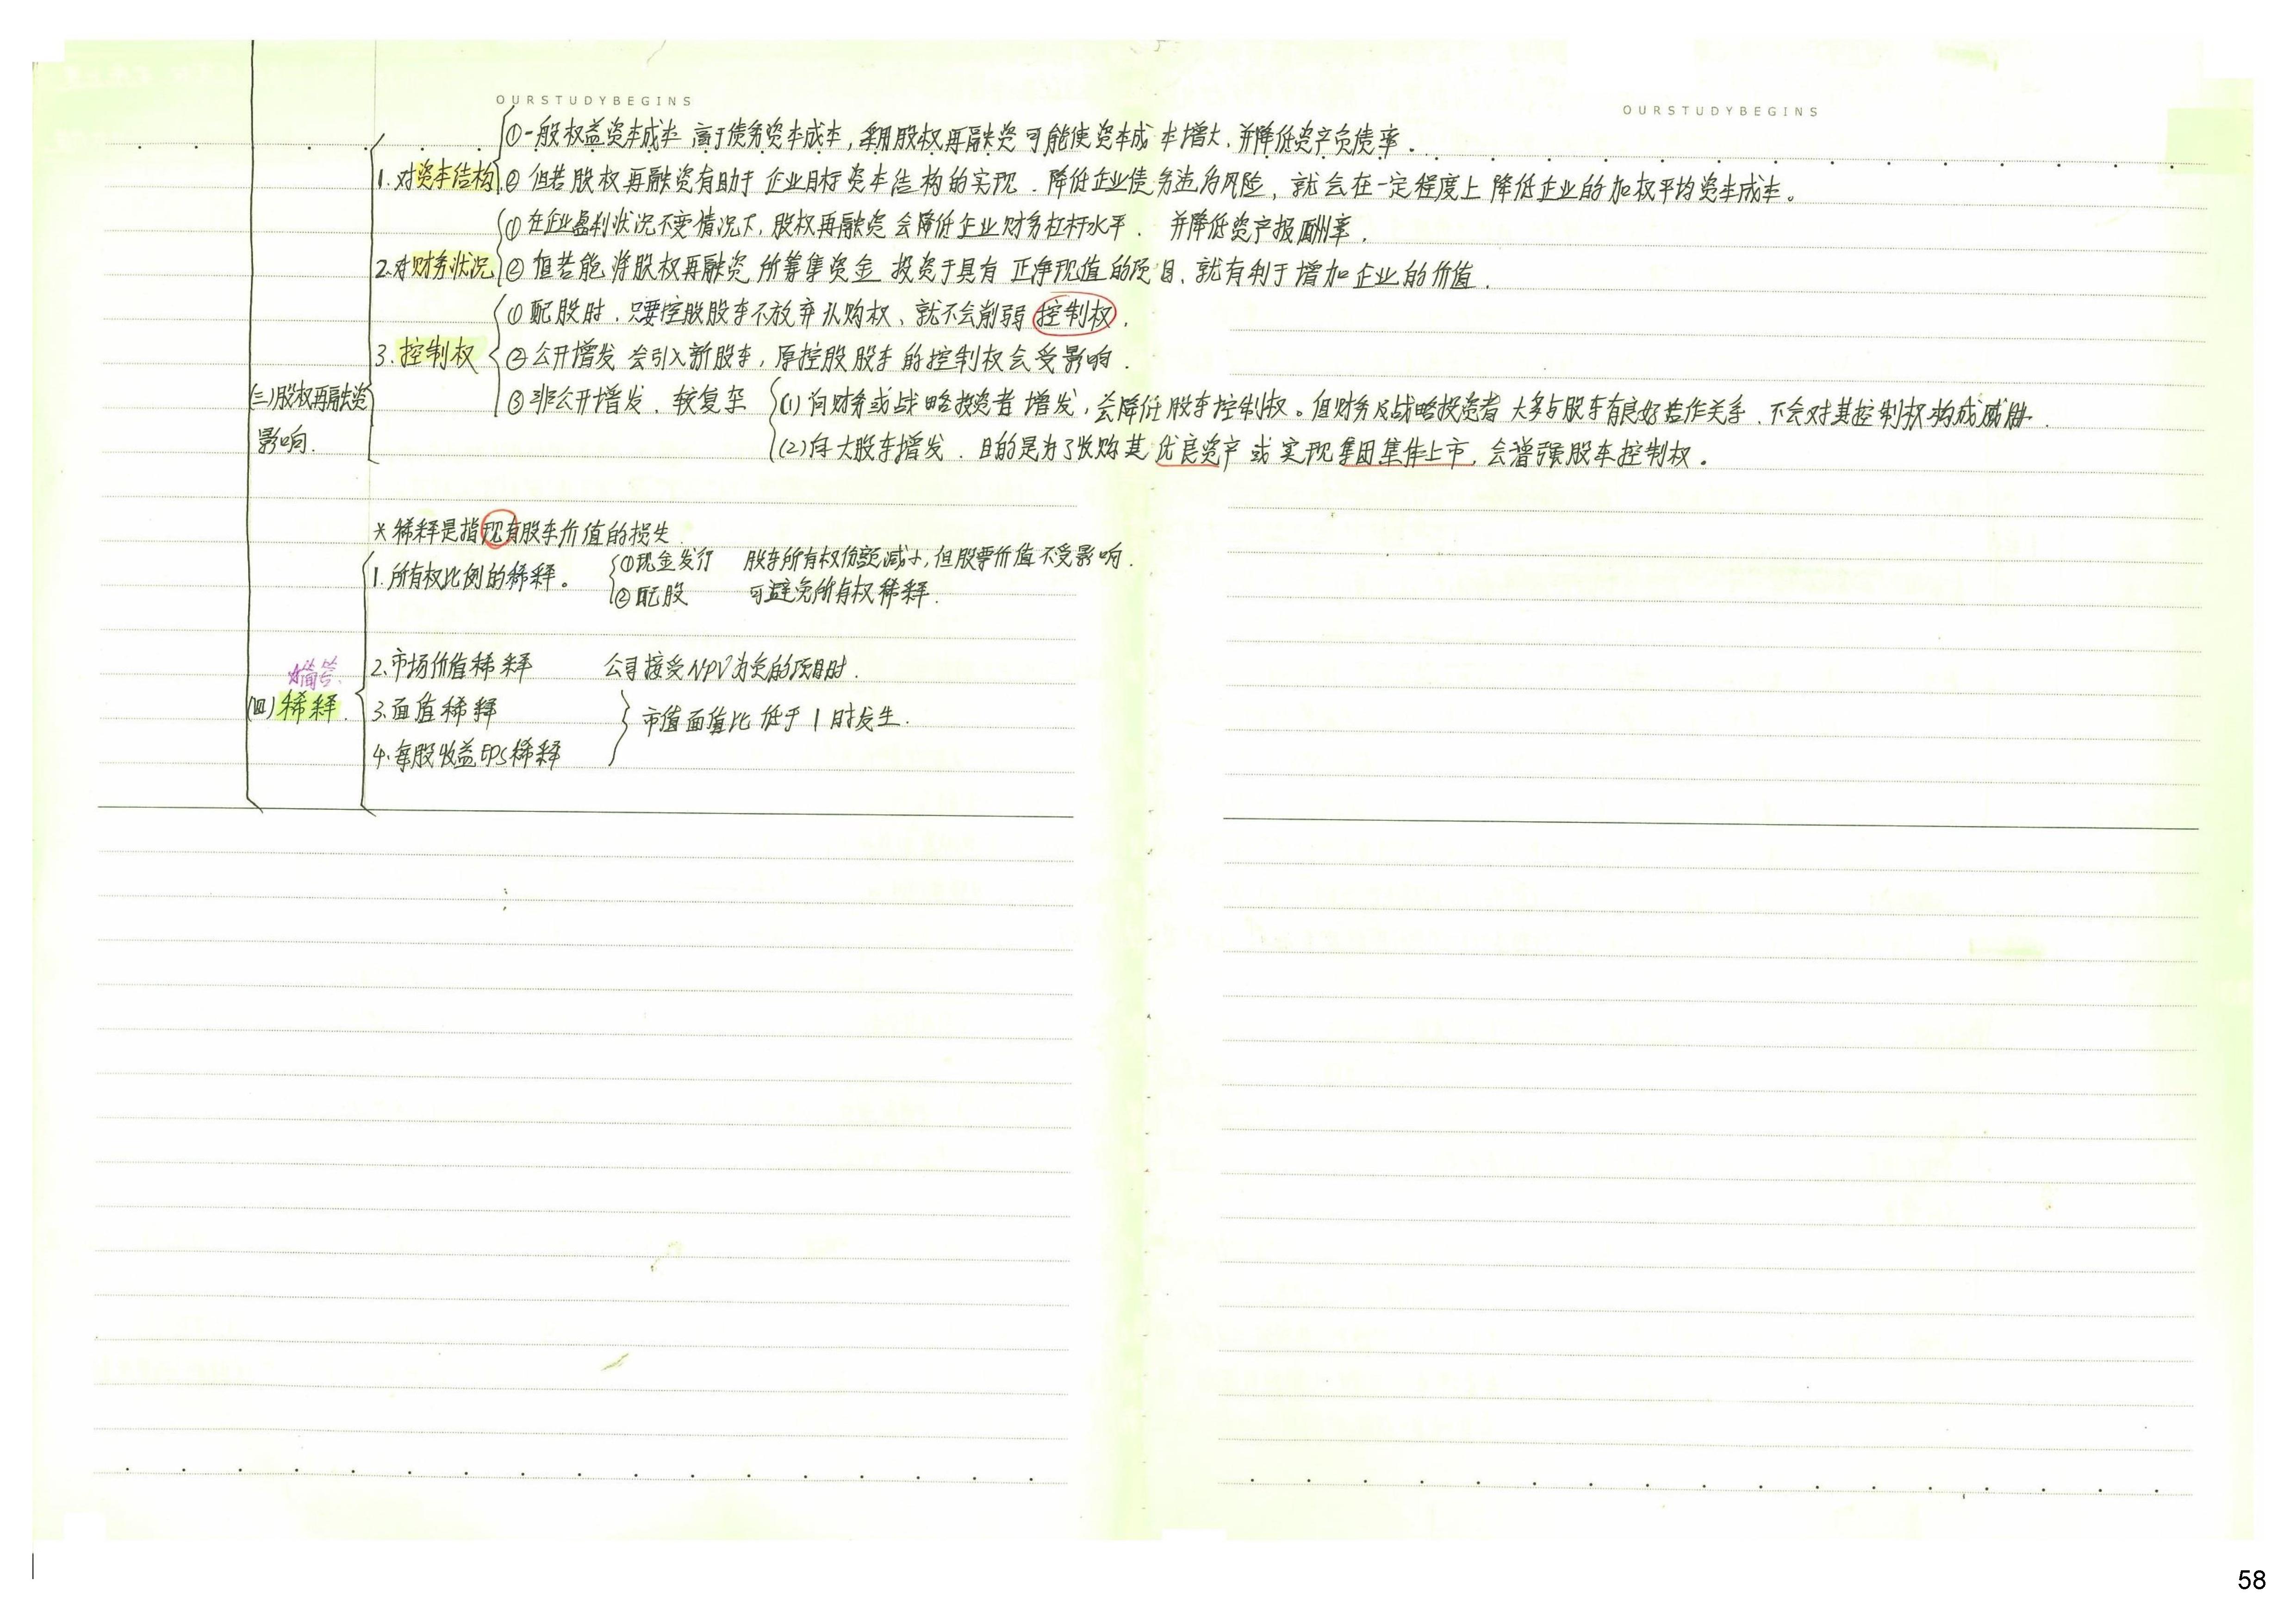 OURSTUDYBEGINS
OURSTUDYBEGINS
①一般权益资本成本 高于债务资本成本，采用股权再融资可能使资本成本增大，并降低资产负债率.
1.对资本结构 ② 但若股权再融资有助于企业目标资本结构的实现.降低企业债务违约风险，就会在一定程度上降低企业的加权平均资本成本。
①在企业盈利状况不变情况下，股权再融资会降低企业财务杠杆水平. 并降低资产报酬率.
2.对财务状况 ② 但若能将股权再融资所筹集资金 投资于具有 正净现值的项目、就有利于增加企业的价值.
①配股时.只要控股股东不放弃认购权、就不会削弱控制权.
3.控制权 ②公开增发 会引入新股东，原控股股东的控制权会受影响.
(三)股权再融资 ③非公开增发.较复杂 (1)向财务或战略投资者 增发，会降低股东控制权。但财务及战略投资者 大多与股东有良好合作关系.不会对其控制权构成威胁.
影响. (2)向大股东增发.目的是为了收购其优良资产或实现集团整体上市.会增强股东控制权.
*稀释是指现有股东价值的损失
1.所有权比例的稀释。 ①现金发行 股东所有权份额减小，但股票价值不受影响.
②配股 可避免所有权稀释.
2.市场价值稀释 公司接受NPV为负的项目时.
☆简答.
(四)稀释. 3.面值稀释 市值面值比低于1时发生.
4.每股收益EPS稀释
58